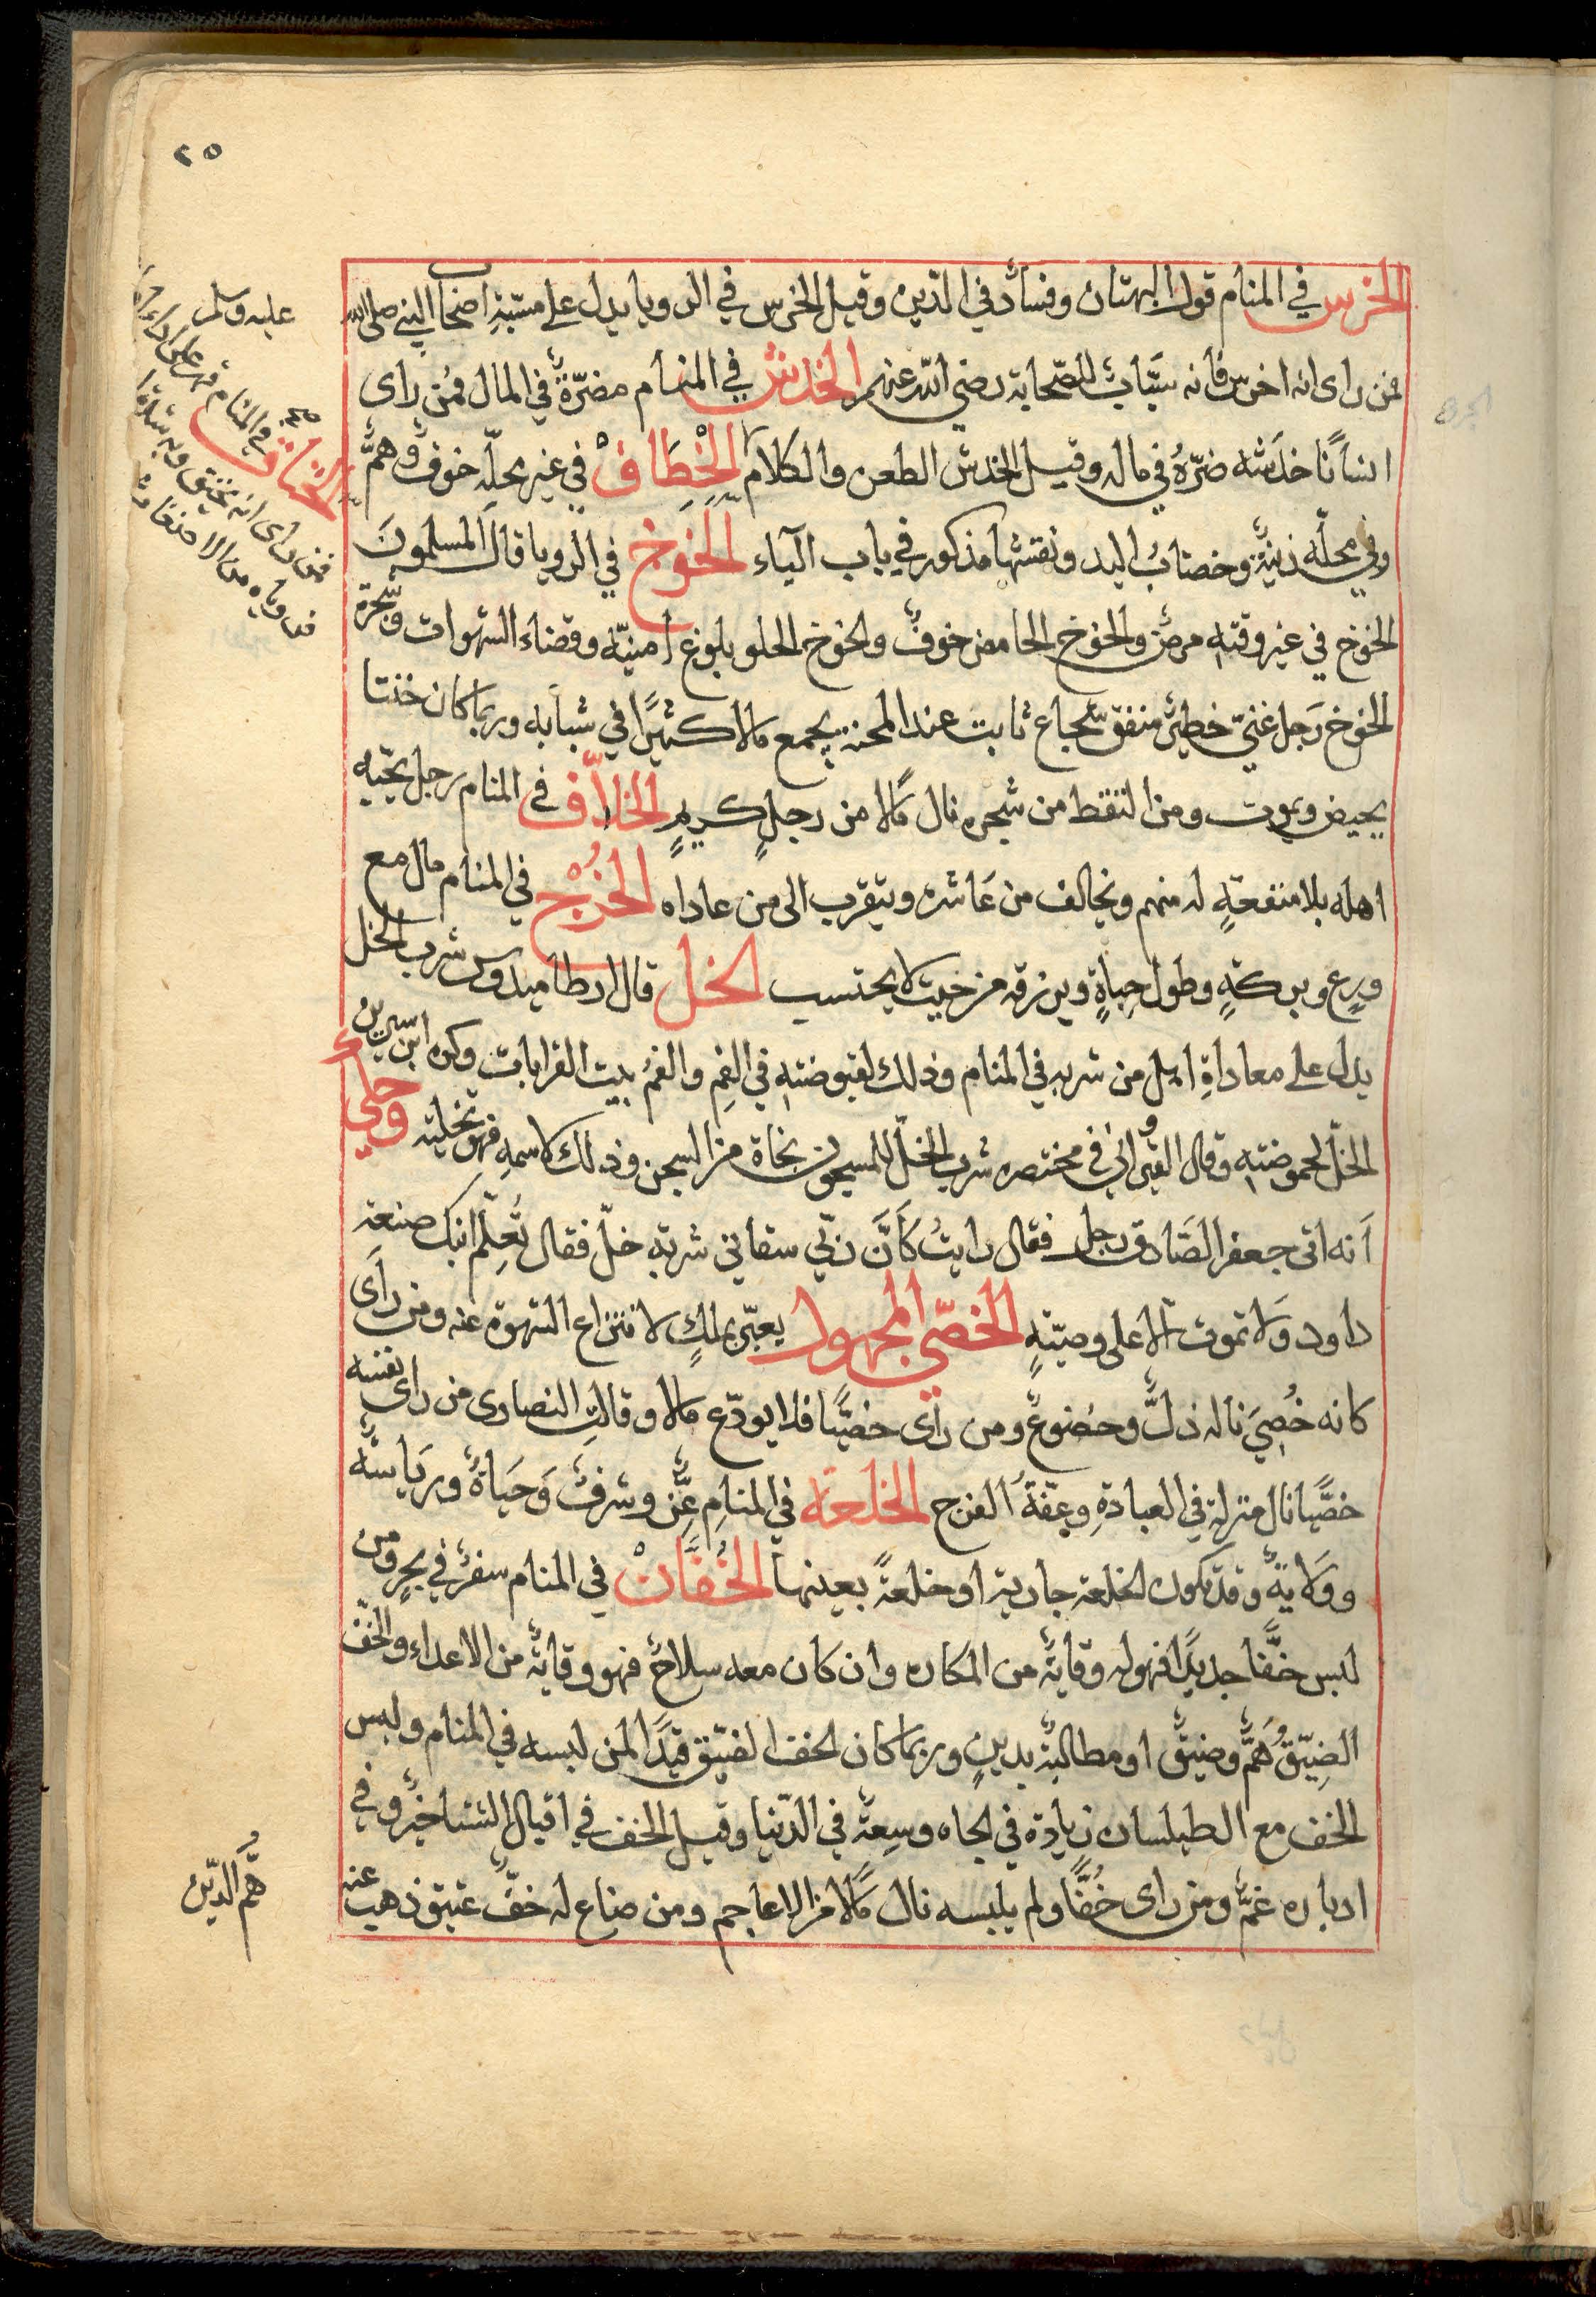 ٢٥
الخرس في المنام قول البهتان وفساد في الدّين وقيل الخرس في الرويا يدل على مسبّةِ اصحاب النبي صلى الله
عليه وسلم
فمن راى انه اخرس فانه سبّاب للصّحابة رضي الله عنهم الخدش في المنام مضرّة في المال فمن راى
انسانًا خدشه ضرّهُ في ماله وقيل الخدش الطعن والكلام الخِطَافْ في غير محلّه خوف وهمٌّ
وفي محلّه زينةٌ وخضابُ اليد ونقشها مذكور في باب الياء الخَوخ في الرويا قال المسلمونَ
الخوخ في غير وقتهِ مرض والخوخ الحامض خوفٌ والخوخ الحلو بلوغ امنيّة وقضاء الشهوات وشجرة
الخوخ رَجل غنيّ خطيرٌ منفق شجاع ثابت عند المحنة يجمع مالا كثيرًا في شبابه وربما كان خنثا
يحيض ويموت ومن التقط من شجره نال مَالا من رجلٍ كريمٍ الخلاف في المنام رجل يحبّه
اهله بلا منفعةٍ له منهم ويخالف من عَاشره ويتقرب الى من عاداه الخُرْج في المنام مال مع
ورعٍ وبركةٍ وطول حياةٍ ويرزقه من حيث لا يحتسب الخل قال ارطاميدورس شرب الخل
يدل على معاداةِ اهل من شربه في المنام وذلك لقبوضتهِ في الفمِ والفمُ بيت القرابات وكره ابن سيرين
الخلّ لحموضتهِ وقال القيرواني في مختصره شرب الخلّ للمسجون نجاة من السجن وذلك لاسمهِ فهو تخليته وحكي
اَنه اتى جعفر الصَادق رجل فقال رايتُ كَاَنَّ ربّي سقاني شربة خلّ فقال تُعلّم ابنك صنعة
داود وَلا تموت الا على وصيّتهٍ الخصّي المجهول يعبّر بملكٍ لانتزاع الشهوة عنه ومن راَى
كانه خُصِيَ ناله ذلٌّ وخضوعٌ ومن راى خصيًّا فلا يودّع مالا وقالتِ النصارى من راى نفسه
خصيًّا نال منزلة في العبادةِ وعفّةَ الفرج الخلعة في المنامِ عزٌّ وشرفٌ وَحَيَاةٌ ورياسةٌ
ووَلايةٌ وقد تكون الخلعة جارية او خلعةً بعينها الخُفَّانْ في المنام سفرٌ في بحرٍ ومن
لبس خفًّا جديدًا فهو له وقايةٌ من المكاره وان كان معه سلاحٌ فهو وقايةٌ من الاعداء والخفّ
الضيّقُ همٌّ وضيقٌ او مطالبةٌ بدينٍ وربما كان الخف الضيّق قيدًا لمن لبسه في المنام ولبس
الخف مع الطيلسان زيادة في الجاه وسعة في الدّنيا وقيل الخف في اقبال الشتا خيرٌ وفي
ادباره غمٌّ ومن راى خُفًّا ولم يلبسه نال مَالا من الاعاجم ومن ضاع له خفٌّ عتيق ذهب عنه
همّ الدّين
الخناق في المنام قهر على
فمن راى انه يختنق وبه